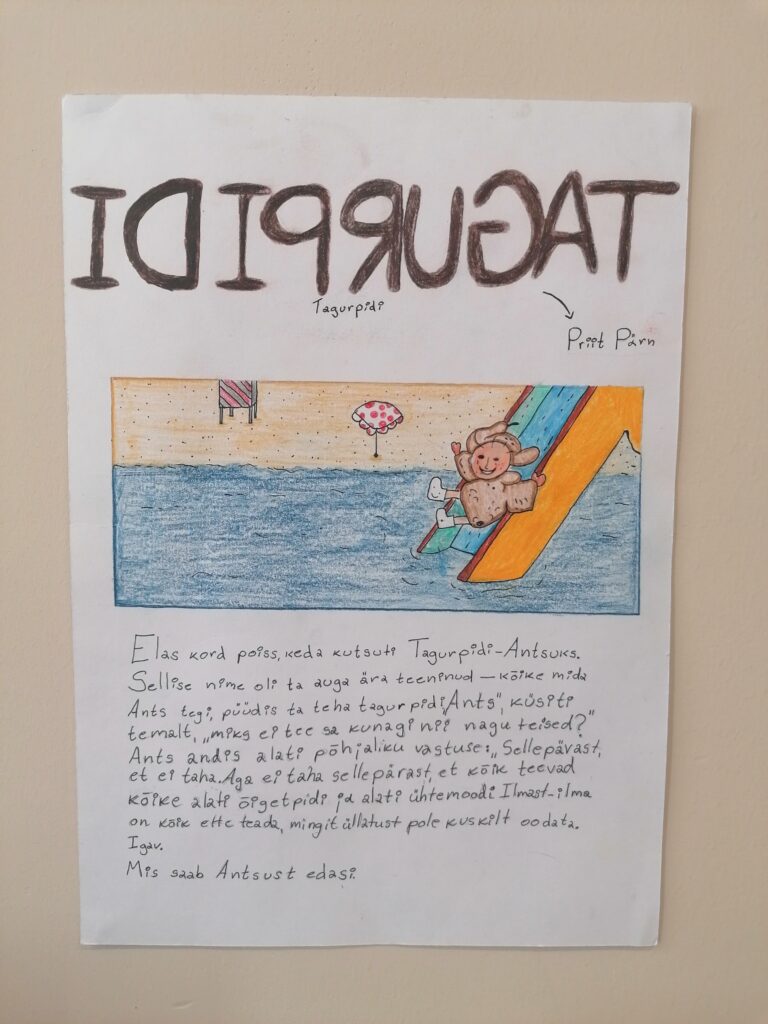 TAGURPIDI
Tagurpidi
Priit Pärn
Elas kord poiss, keda kutsuti Tagurpidi-Antsuks.
Sellise nime oli ta auga ära teeninud — kõike mida
Ants tegi, püüdis ta teha tagurpidi „Ants", küsiti
temalt, „miks ei tee sa kunagi nii nagu teised?"
Ants andis alati põhjaliku vastuse: „Sellepärast,
et ei taha. Aga ei taha sellepärast, et kõik teevad
kõike alati õigetpidi ja alati ühtemoodi. Ilmast-ilma
on kõik ette teada, mingit üllatust pole kuskilt oodata.
Igav.
Mis saab Antsust edasi.